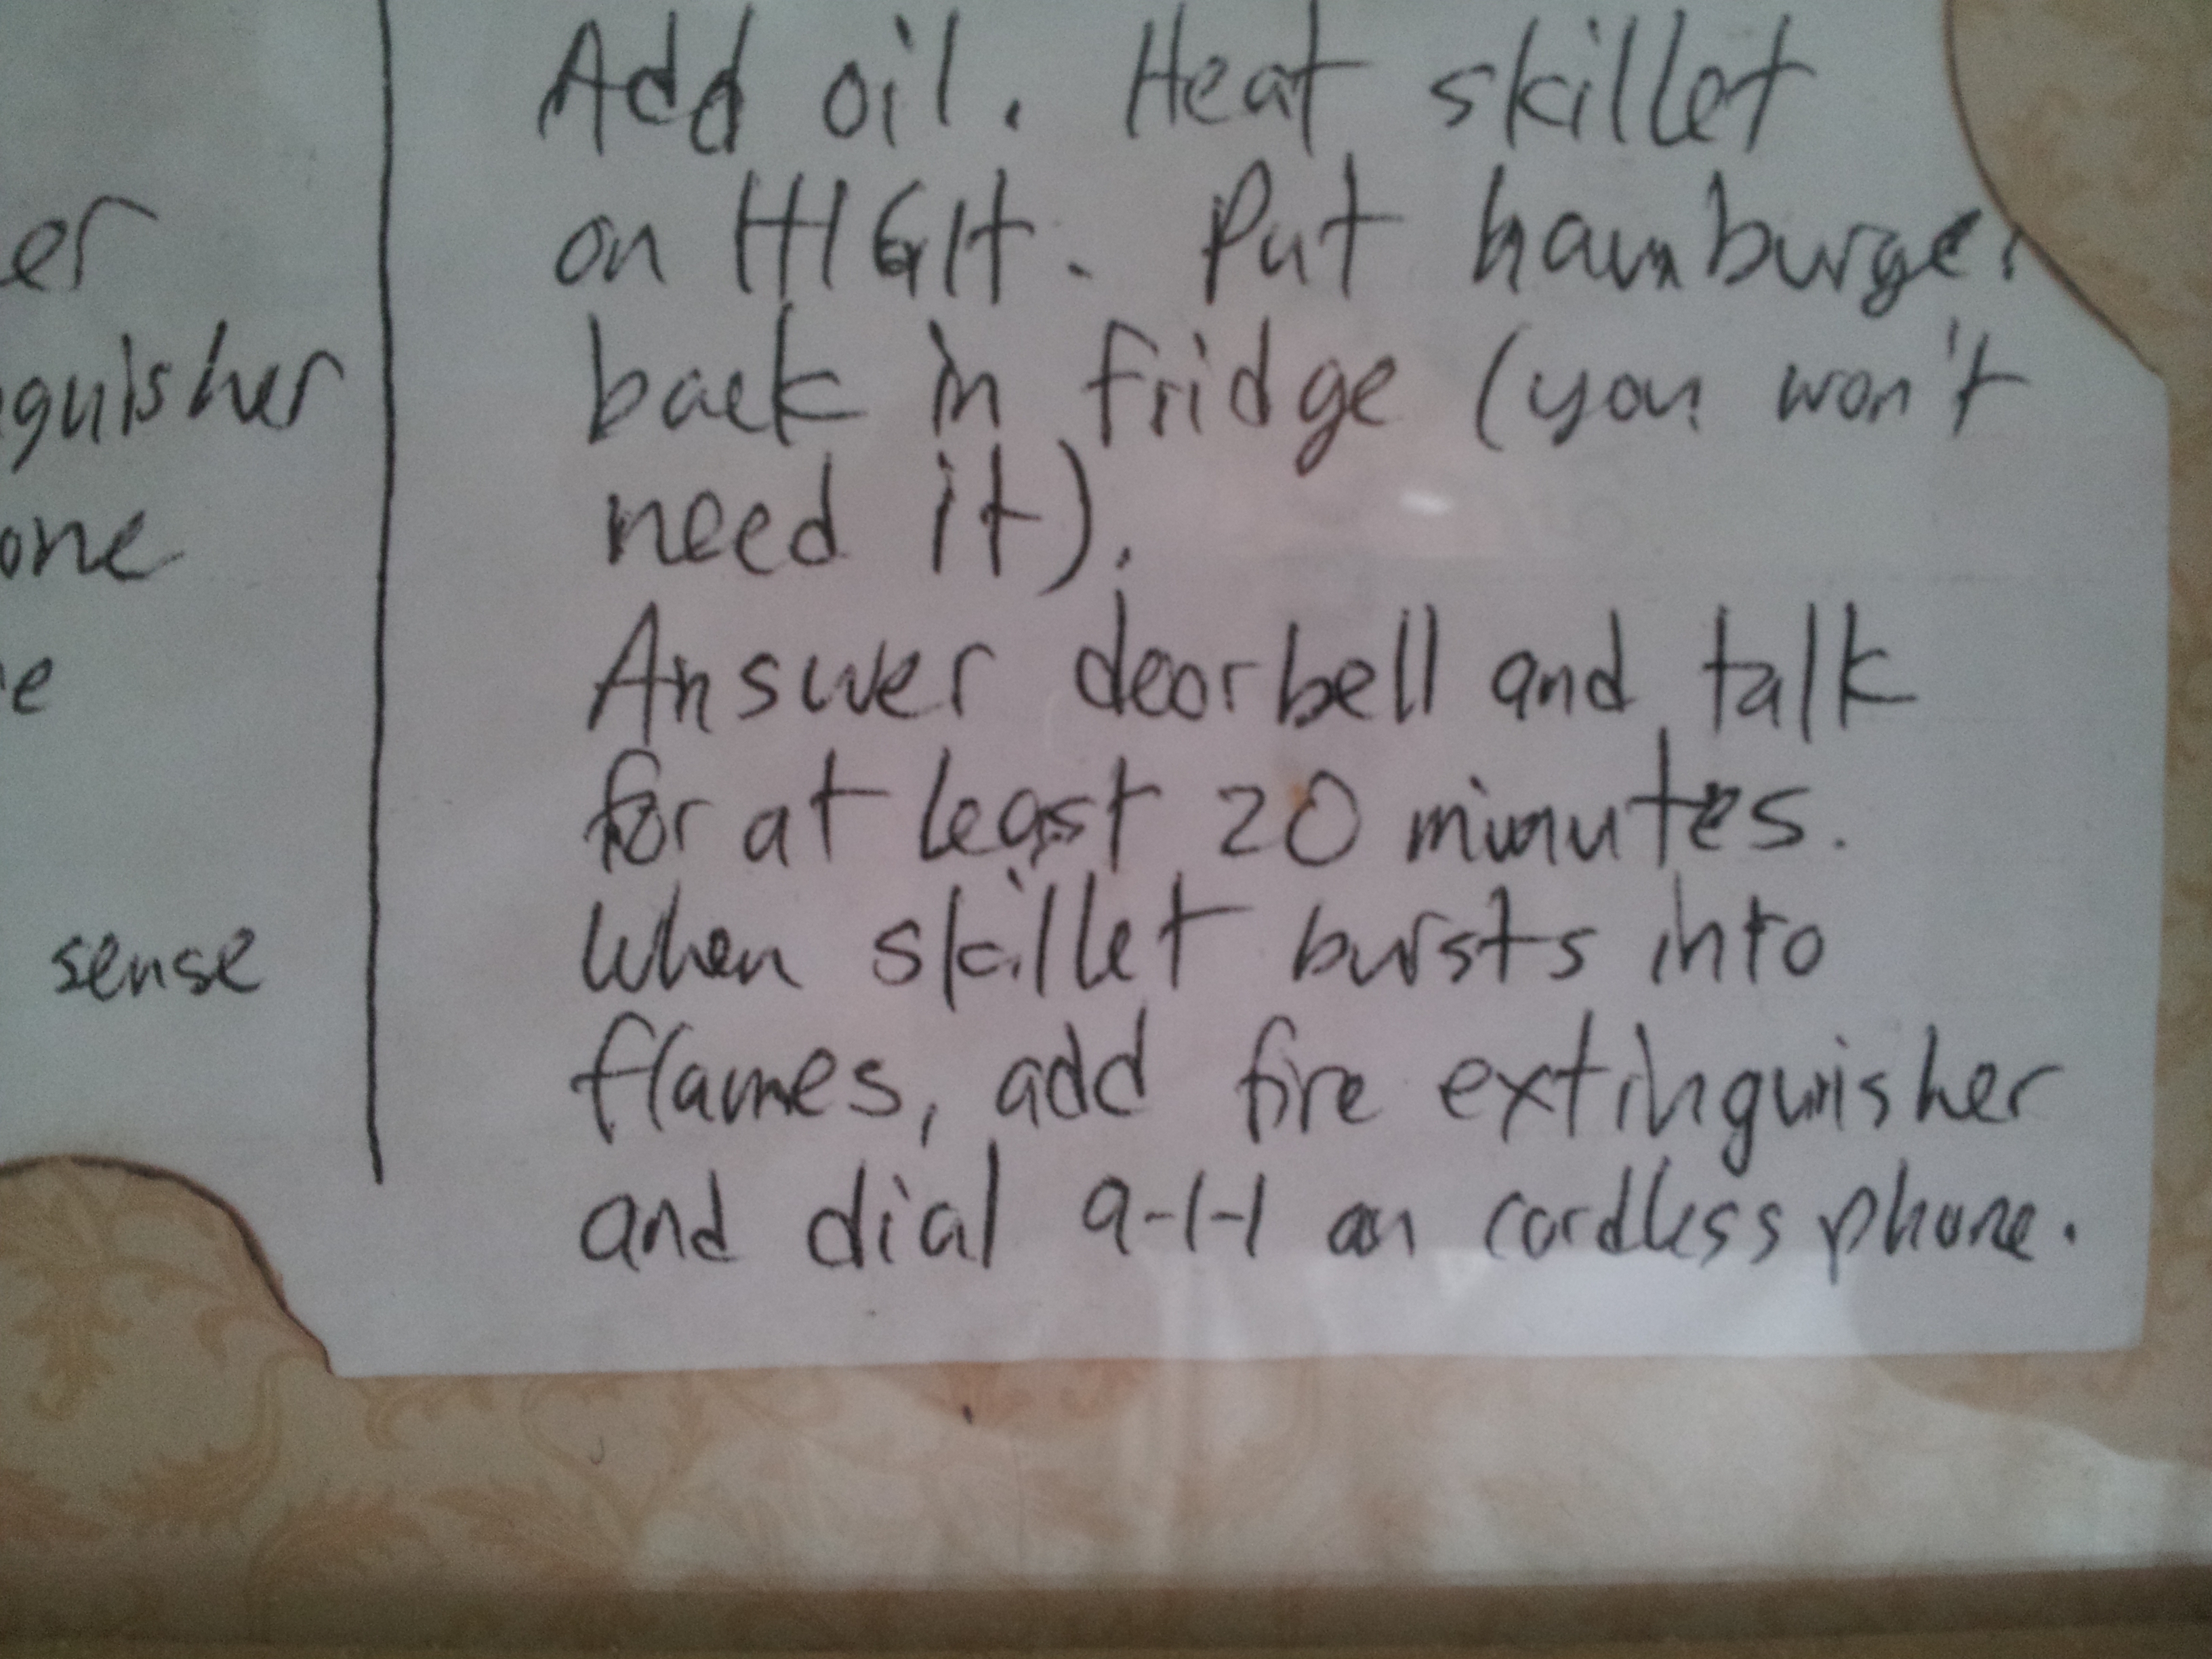 er
guisher
one
e
sense
Add oil. Heat skillet
on HIGH. Put hamburger
back in fridge (you won't
need it).
Answer doorbell and talk
for at least 20 minutes.
When skillet bursts into
flames, add fire extinguisher
and dial 9-1-1 on cordless phone.